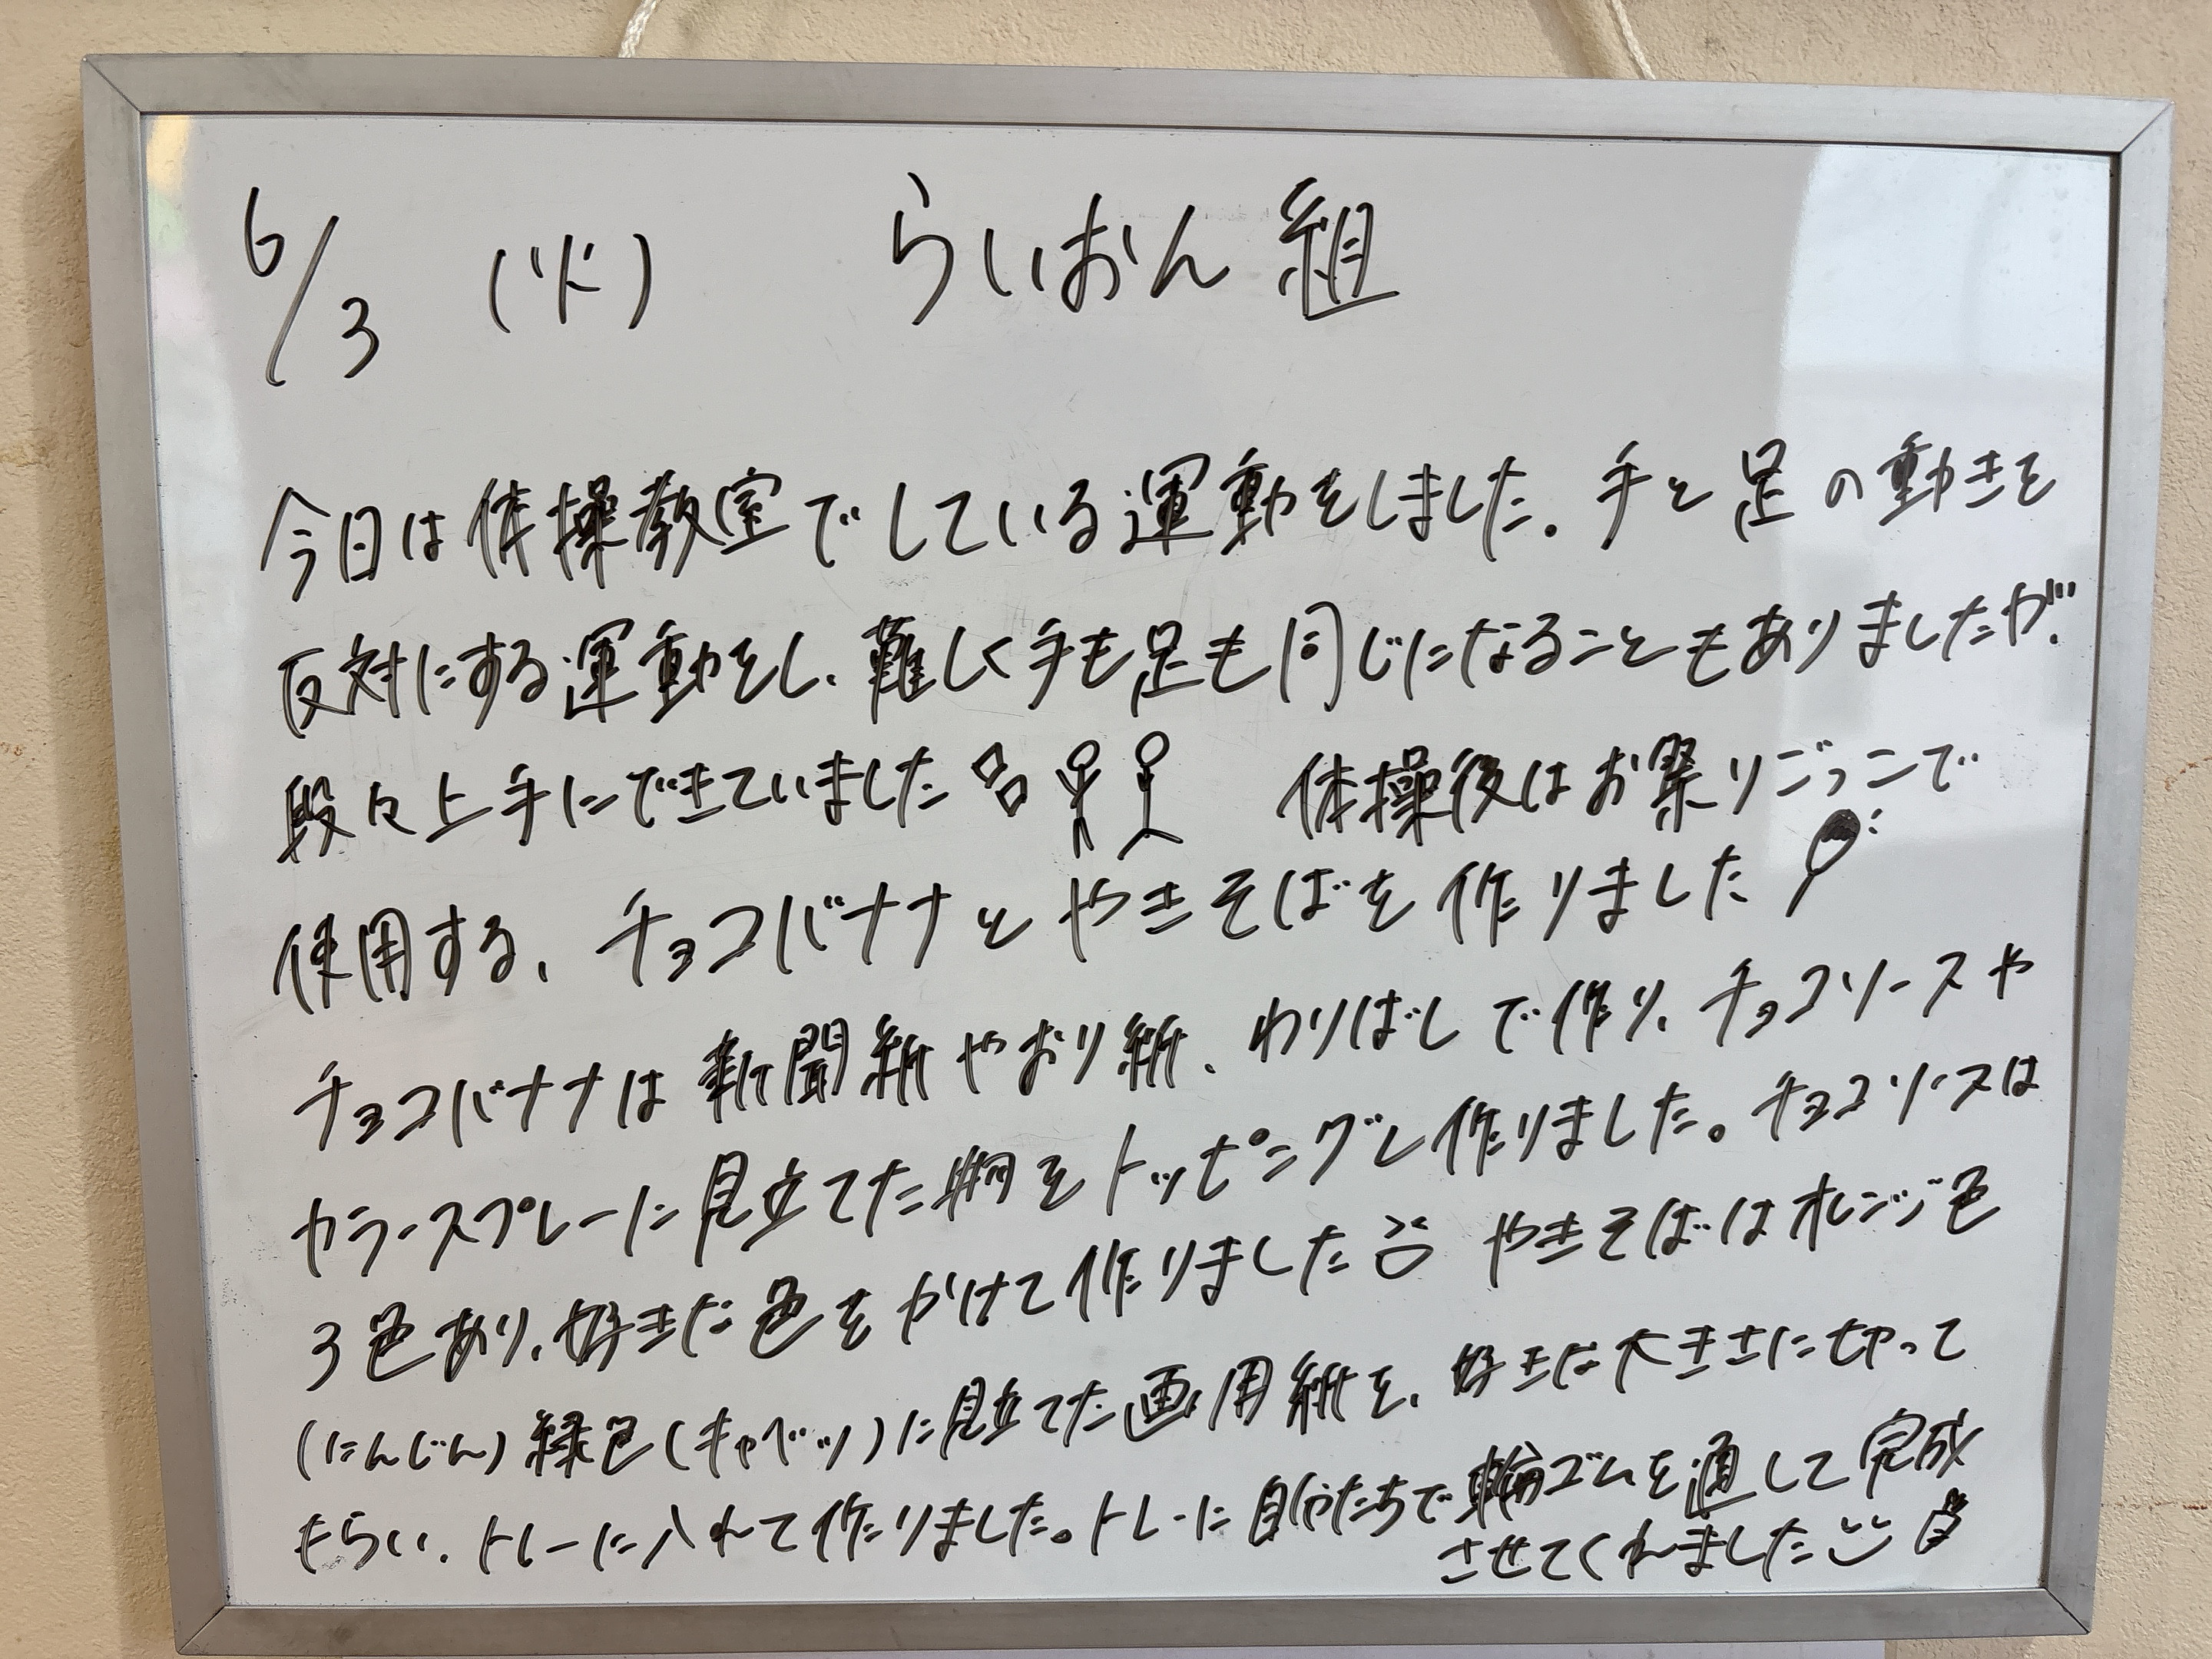 6/3 (火) らいおん組
今日は体操教室でしている運動をしました。手と足の動きを
反対にする運動をし、難しく手も足も同じになることもありましたが、
段々上手にできていました 体操後はお祭りごっこで
使用する、チョコバナナとやきそばを作りました
チョコバナナは新聞紙やおり紙、わりばしで作り、チョコソースや
カラースプレーに見立てた柄をトッピングし作りました。チョコソースは
3色あり、好きな色をかけて作りました やきそばはオレンジ色
(にんじん)緑色(キャベツ)に見立てた画用紙を、好きな大きさに切って
もらい、トレーに入れて作りました。トレーに自分たちで輪ゴムを通して完成
させてくれました